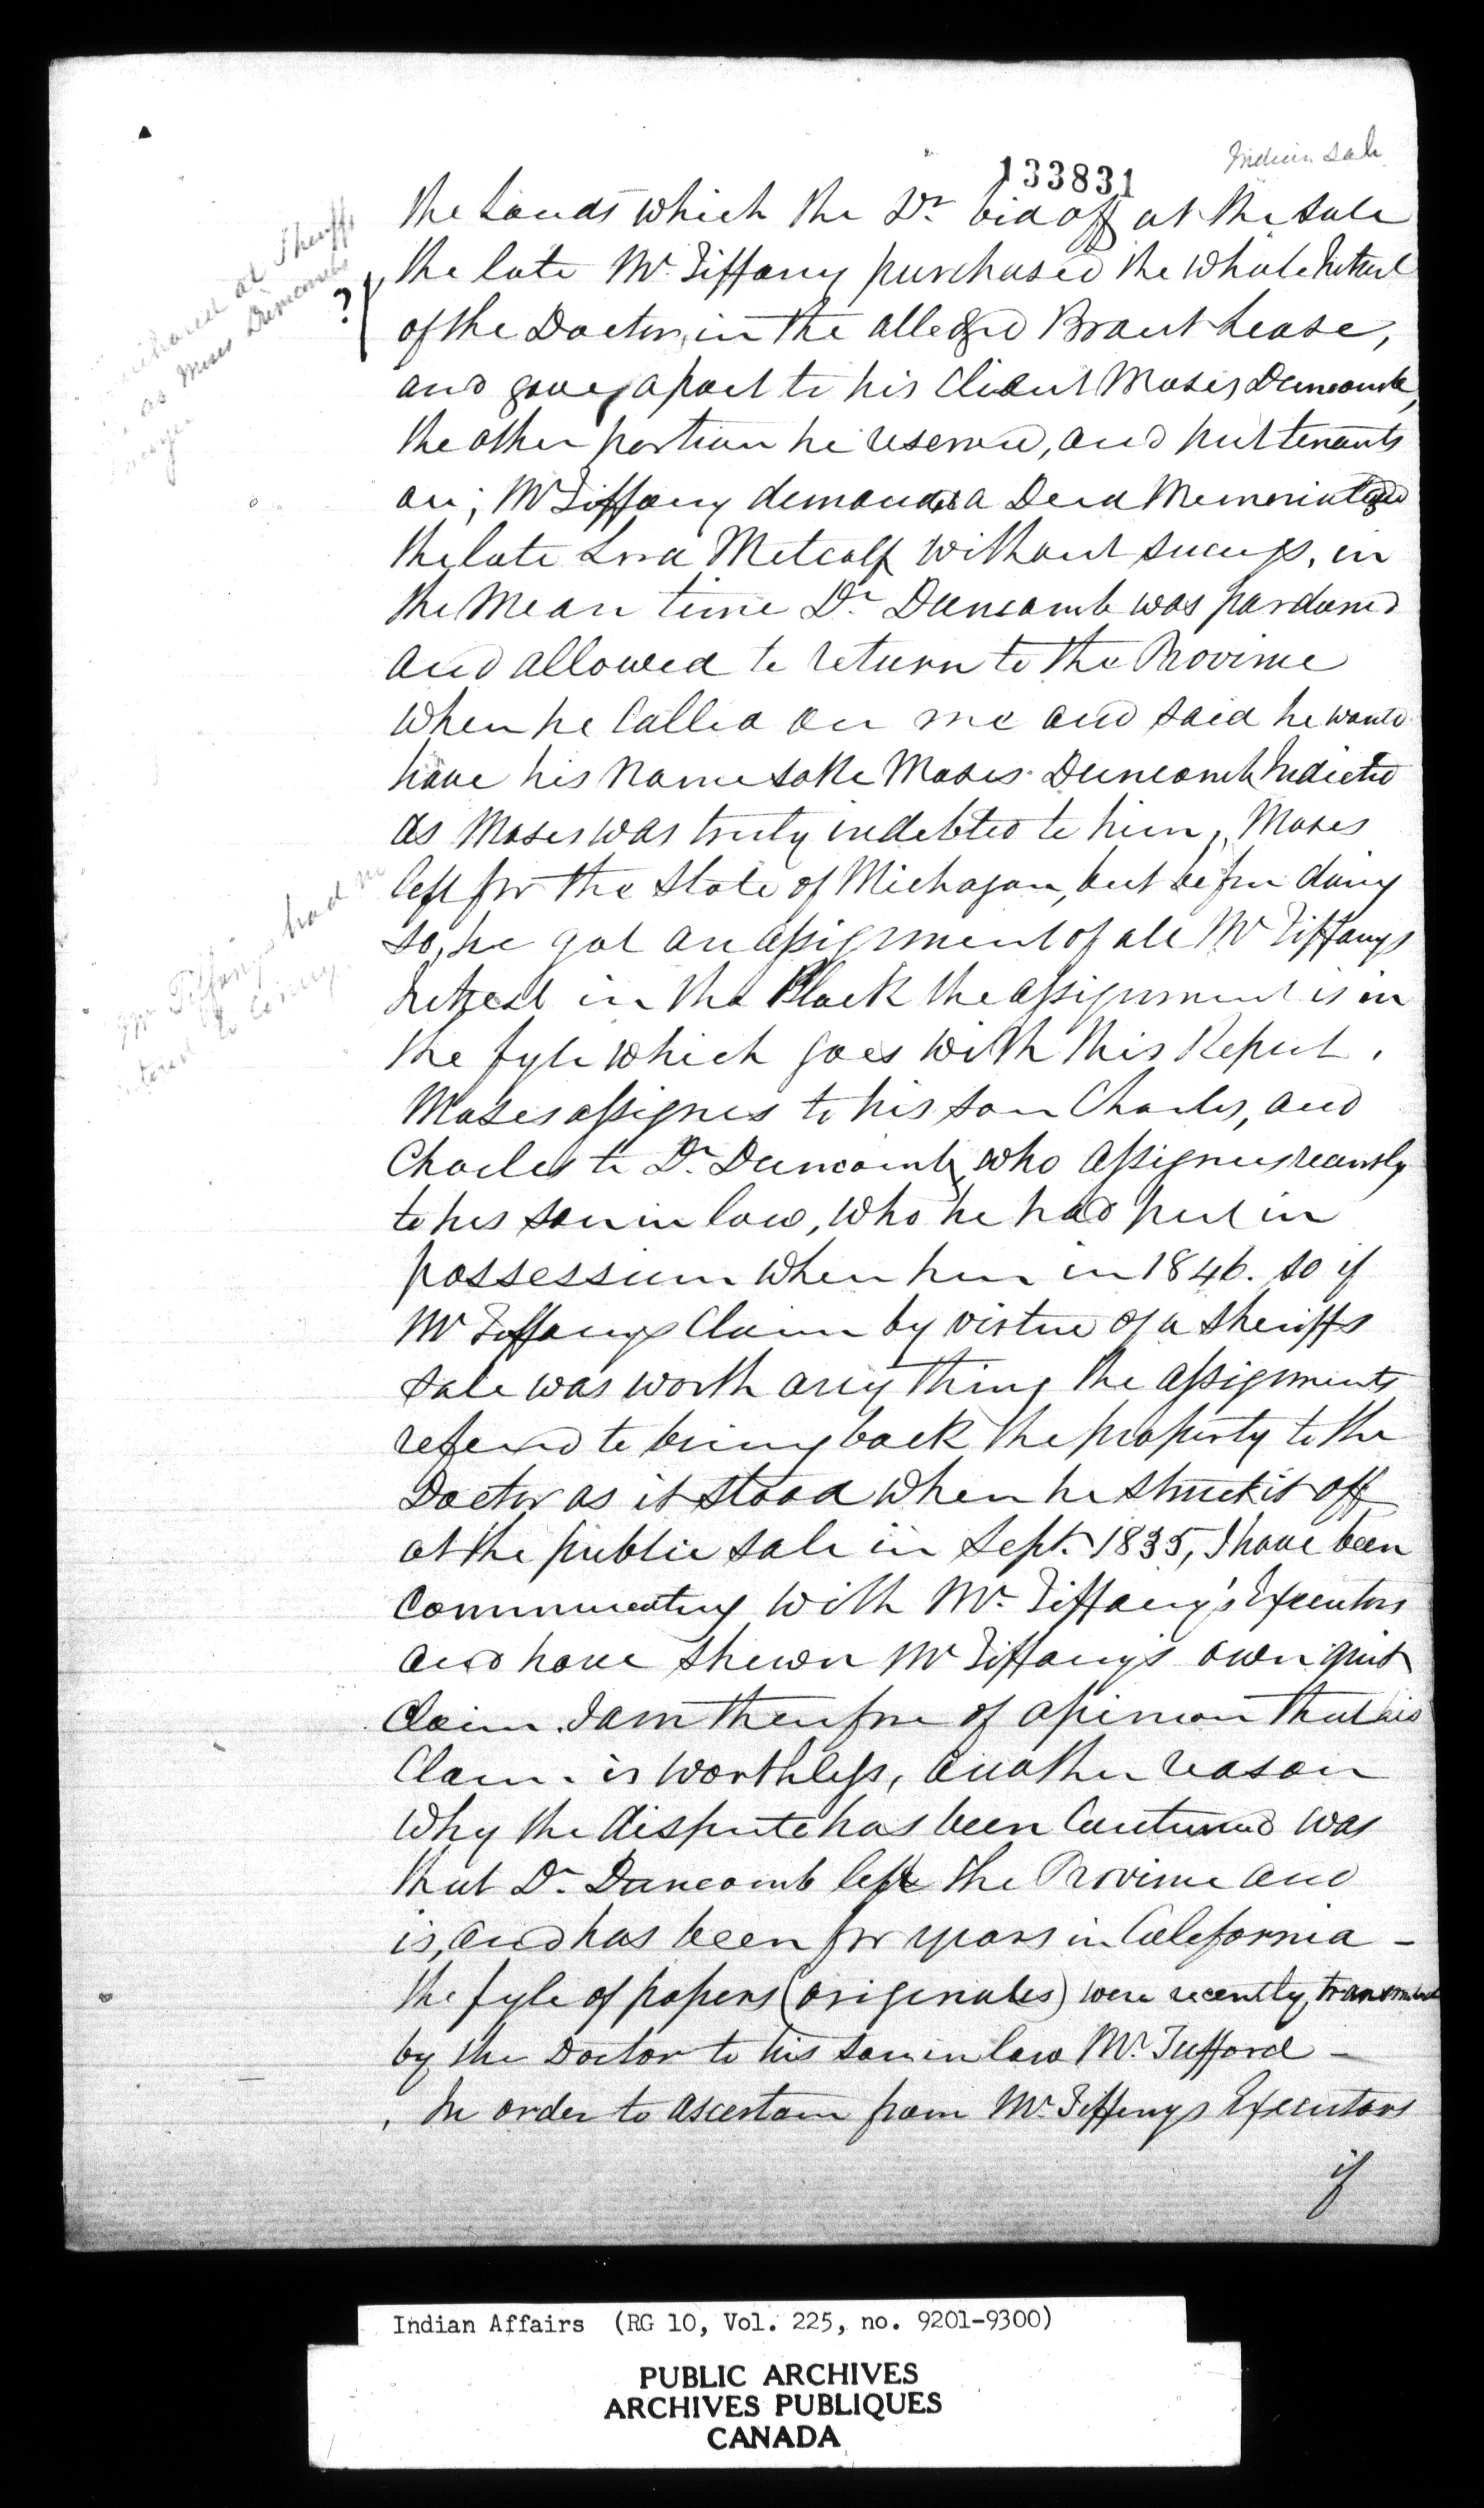 133831
Indian Sale
the Lands which the Dr. bid off at the Sale
the late Mr. Tiffany purchased the whole Intrest
of the Doctor, in the alledged Brant Lease,
and gave, a part to his Client Moses Duncomb,
the other portion he reserved, and put tenants
on; Mr Tiffany demanded a Deed Memorialized
the late Lord Metcalf without success, in
the Mean time Dr. Duncomb was pardoned
and allowed to return to the Province
when he called on me and said he would
have his Namesake Moses Duncomb Indicted
as Moses was truly indebted to him, Moses
left for the State of Michagan, but before doing
so, he got an assignment of all Mr Tiffanys
Intrest in the Block the assignment is in
the fyle which goes with this Report.
Moses assignes to his son Charles, and
Charles to Dr. Duncomb, who assignes recently
to his son in law, who he had put in
possession when here in 1846. so if
Mr Tiffanys Claim by virtue of a Sheriffs
Sale was worth any thing the assignments
refered to bring back the property to the
Doctor as it stood when he struck it off
at the public sale in Sept. 1835, I have been
communicating with Mr. Tiffany's Executors
and have shewn Mr Tiffany's own quit
Claim. I am therefore of opinion that his
Claim is worthless, another reason
why the dispute has been Continued was
that Dr. Duncomb left the Province and
is, and has been for years in California -
the fyle of papers (originales) were recently, transmitted
by the Doctor to his son in law Mr. Tufford -
In order to ascertain from Mr. Tiffenys Executors
if
at Sheriffs
as Moses Duncombs
?
Mr Tiffany had no
interest to convey
Indian Affairs (RG 10, Vol. 225, no. 9201-9300)
PUBLIC ARCHIVES
ARCHIVES PUBLIQUES
CANADA